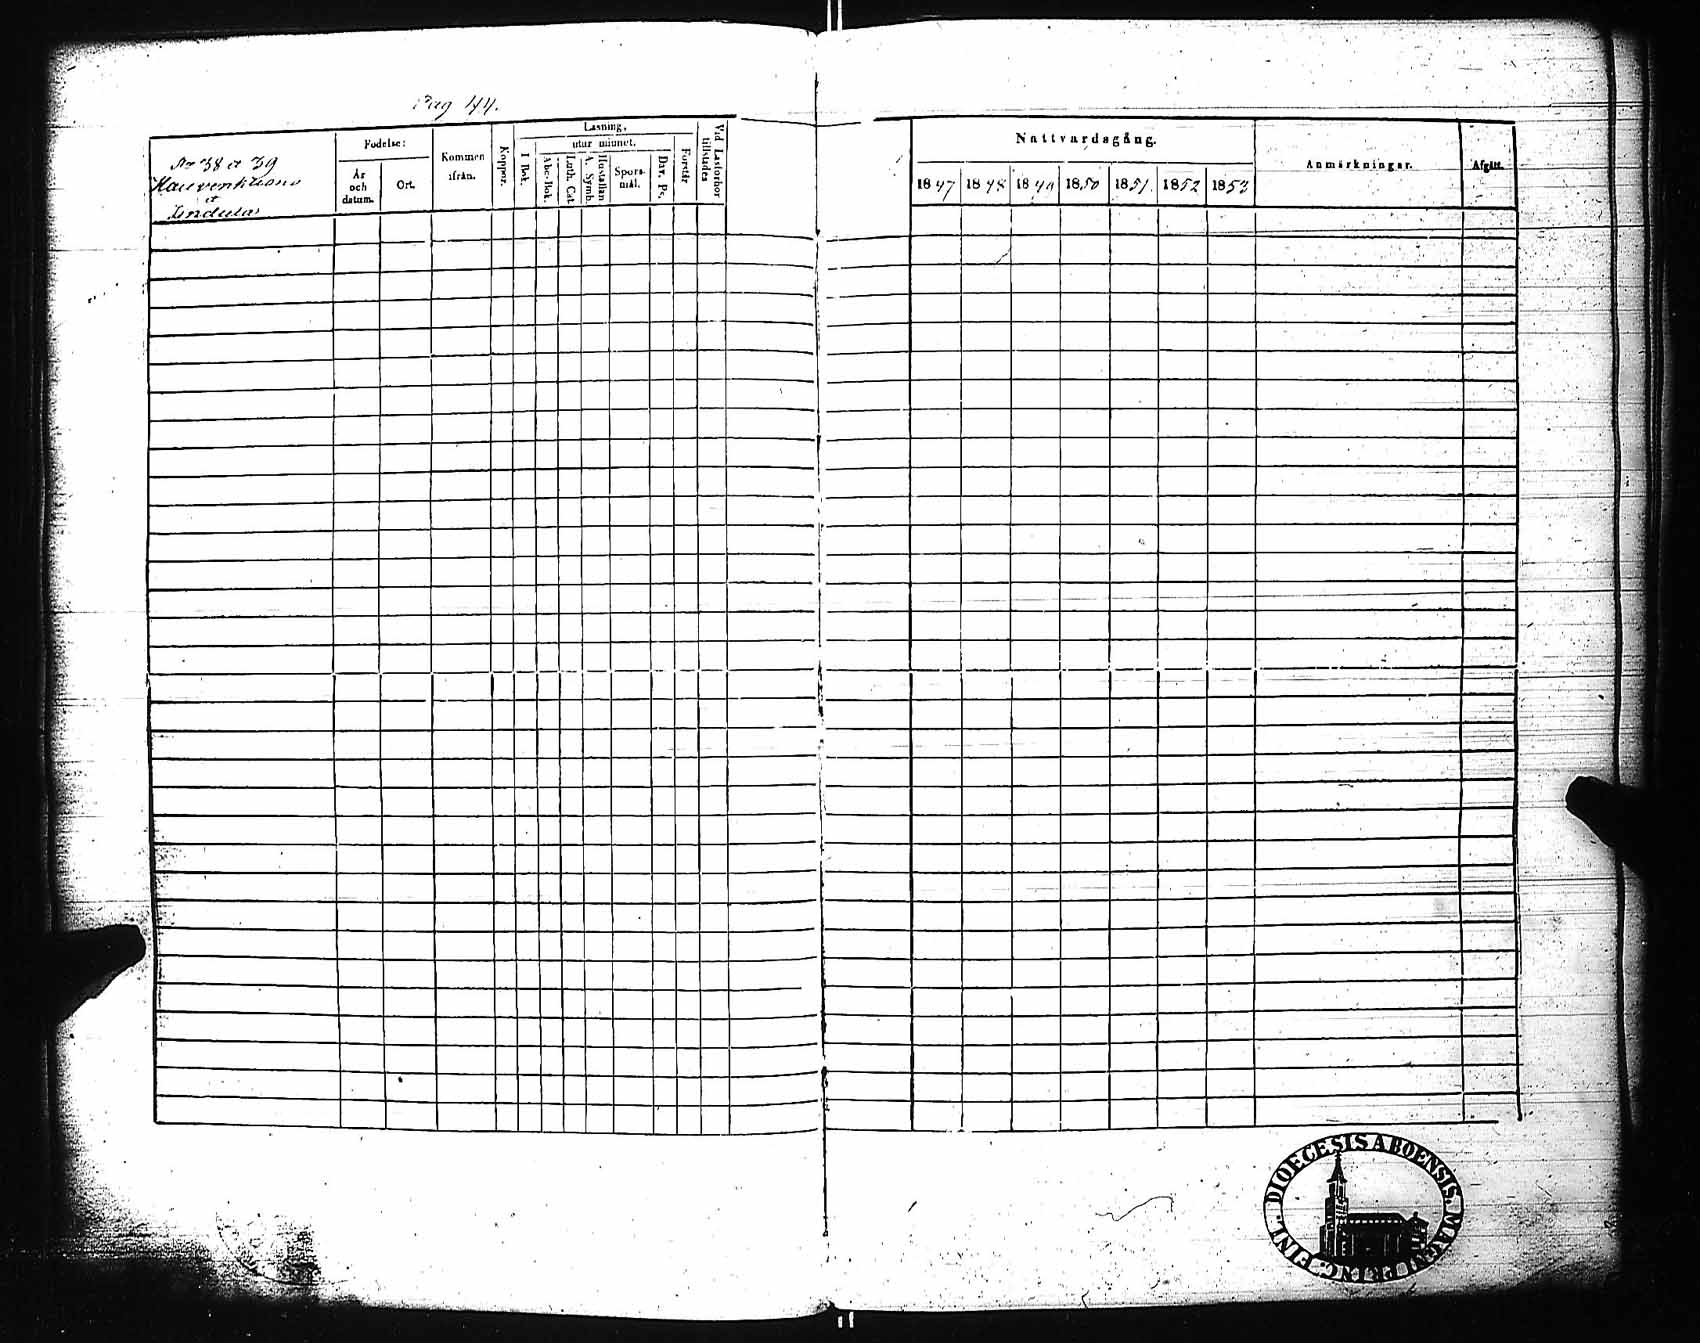 Pag 44.
No 38 et 39
et
Födelse:
År och datum.
Ort.
Kommen ifrån.
Koppor.
Läsning.
I Bok.
utur minnet.
Abc-Bok.
Luth. Cat.
A. Symb.
Hustaflan
Spörs-mål.
Dav. Ps.
Förstår
Vid Läsförhör tillstädes
Nattvardsgång.
1847 1848 1849 1850 1851. 1852 1853
Anmärkningar.
Afgått.
DIOECESIS ABOENSIS. MAGNI PRINC. FINL.